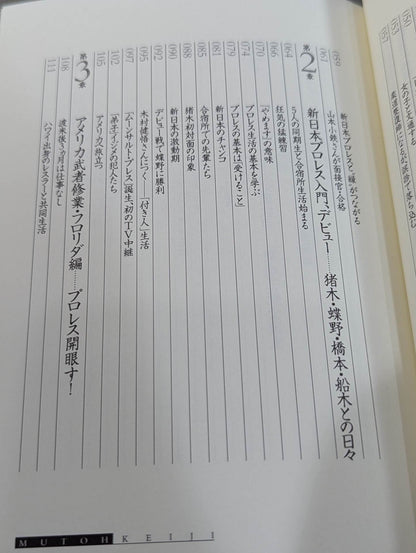 新日本プロレスと「縁」がつながる
059
山本小鉄さんが面接官で合格
062
第2章
新日本プロレス入門、デビュー……猪木・蝶野・橋本・船木との日々
064
5人の同期生と合宿所生活始まる
068
狂気の猛練習
070
「やめます」の意味
074
プロレス生活の基本を学ぶ
079
プロレスの基本は「受けること」
081
新日本のチャンコ
085
合宿所での先輩たち
088
猪木初対面の印象
090
新日本の激動期
092
デビュー戦で蝶野に勝利
095
木村健悟さんにつく「付き人」生活
097
「ムーンサルト・プレス」誕生、初のTV中継
102
「弟子イジメ」の犯人たち
105
アメリカへ旅立つ
第3章
アメリカ武者修業・フロリダ編……プロレス開眼す!
108
渡米後3か月は仕事なし
111
ハワイ出身のレスラーと共同生活
MUTOH KEIJI